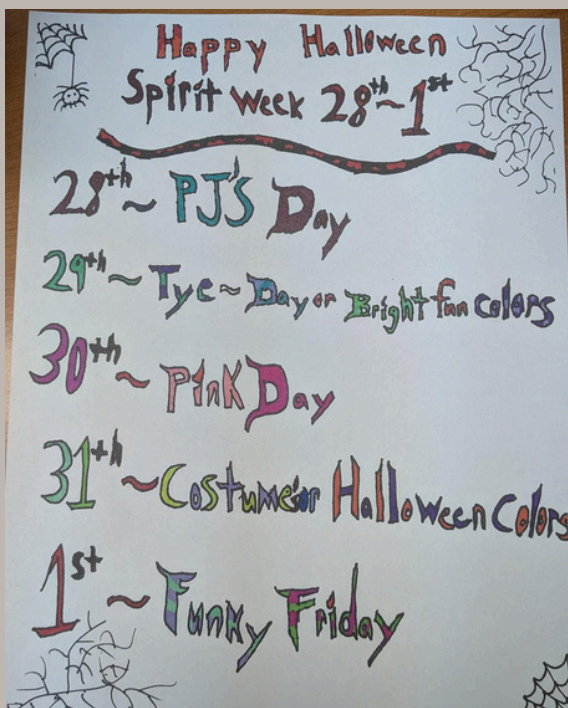 Happy Halloween
Spirit Week 28th~1st
28th~ PJ'S Day
29th~ Tye~Day or Bright fun colors
30th~ Pink Day
31th~Costume or Halloween Colors
1st~ Funky Friday